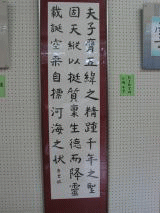 夫子膺五緯之精踵千年之聖
固天縦以挺質稟生德而降靈
載誕空桑自標河海之状